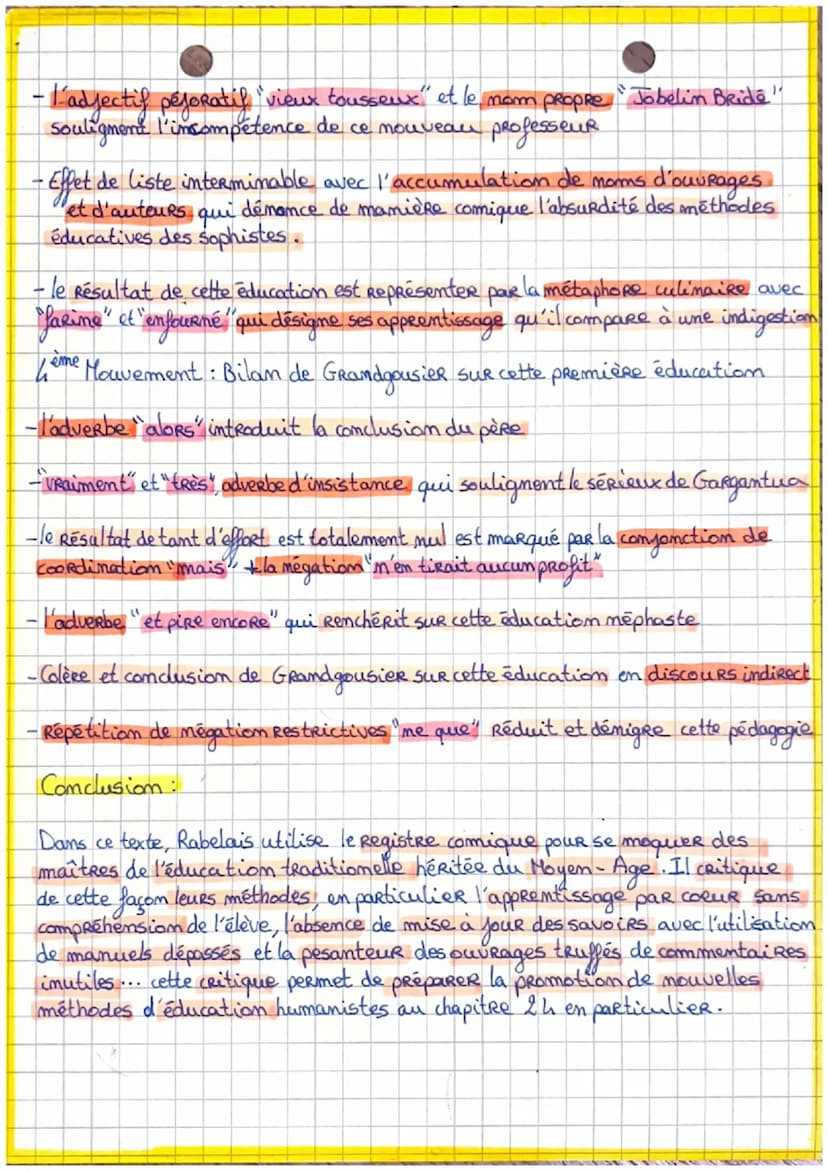 - l'adjectif péjoratif "vieux tousseux" et le nom propre "Jobelin Bridé"
soulignent l'incompétence de ce nouveau professeur
- Effet de liste interminable avec l'accumulation de noms d'ouvrages
et d'auteurs qui dénonce de manière comique l'absurdité des méthodes
éducatives des sophistes.
- le résultat de cette éducation est représenter par la métaphore culinaire avec
"farine" et "enfourné" qui désigne ses apprentissage qu'il compare à une indigestion
4ème Mouvement : Bilan de Grandgousier sur cette première éducation
- l'adverbe "alors" introduit la conclusion du père
- "vraiment" et "très", adverbe d'insistance qui soulignent le sérieux de Gargantua
- le résultat de tant d'effort est totalement nul est marqué par la conjonction de
coordination "mais" + la négation "n'en tirait aucun profit"
- l'adverbe "et pire encore" qui renchérit sur cette éducation néphaste
- Colère et conclusion de Grandgousier sur cette éducation en discours indirect
- Répétition de négation restrictives "ne que" réduit et dénigre cette pédagogie
Conclusion :
Dans ce texte, Rabelais utilise le registre comique pour se moquer des
maîtres de l'éducation traditionelle héritée du Moyen-Age. Il critique
de cette façon leurs méthodes, en particulier l'apprentissage par coeur sans
compréhension de l'élève, l'absence de mise à jour des savoirs avec l'utilisation
de manuels dépassés et la pesanteur des ouvrages truffés de commentaires
inutiles... cette critique permet de préparer la promotion de nouvelles
méthodes d'éducation humanistes au chapitre 24 en particulier.